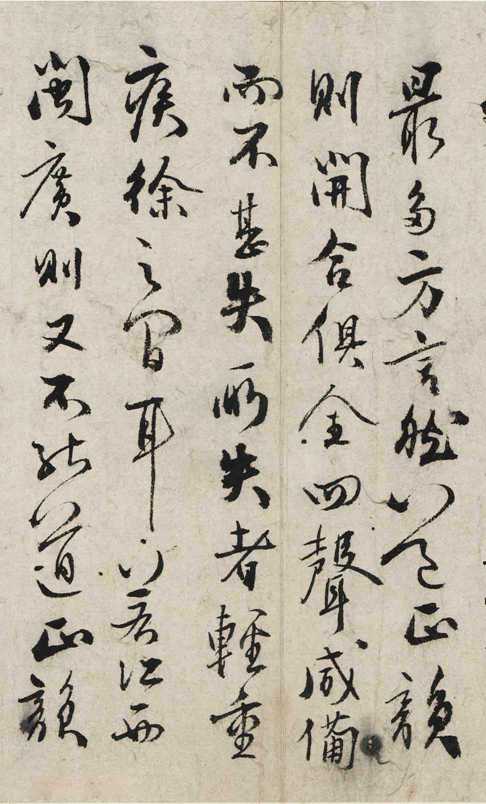 最多方言然以正韻
則開合俱全四聲咸備
而不甚失所失者輕重
疾徐之間耳以江西
閩廣則又不能以道正韻